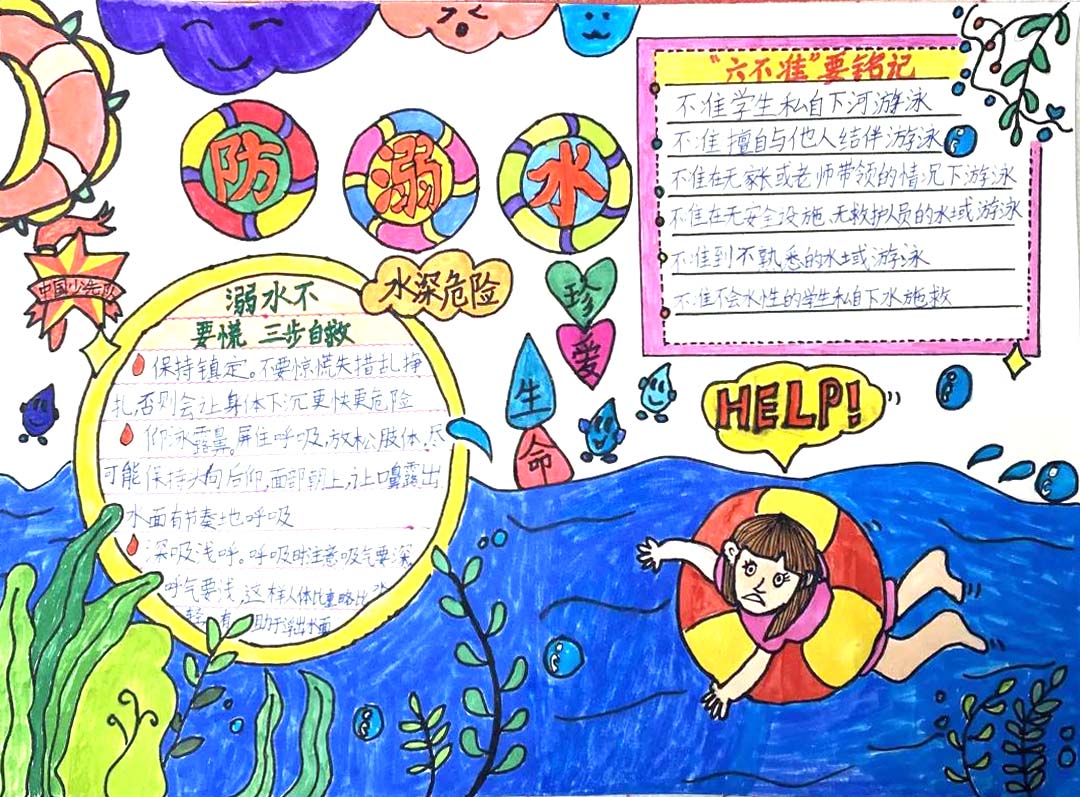 防溺水
水深危险
珍爱
生命
中国少先队
溺水不
要慌 三步自救
保持镇定。不要惊慌失措乱挣
扎,否则会让身体下沉更快更危险
仰泳露鼻。屏住呼吸,放松肢体,尽
可能保持头向后仰,面部朝上,让口鼻露出
水面有节奏地呼吸
深吸浅呼。呼吸时注意吸气要深
呼气要浅,这样人体比重略比水
轻,有助于浮出水面
"六不准"要铭记
不准学生私自下河游泳
不准擅自与他人结伴游泳
不准在无家长或老师带领的情况下游泳
不准在无安全设施、无救护人员的水域游泳
不准到不熟悉的水域游泳
不准不会水性的学生私自下水施救
HELP!